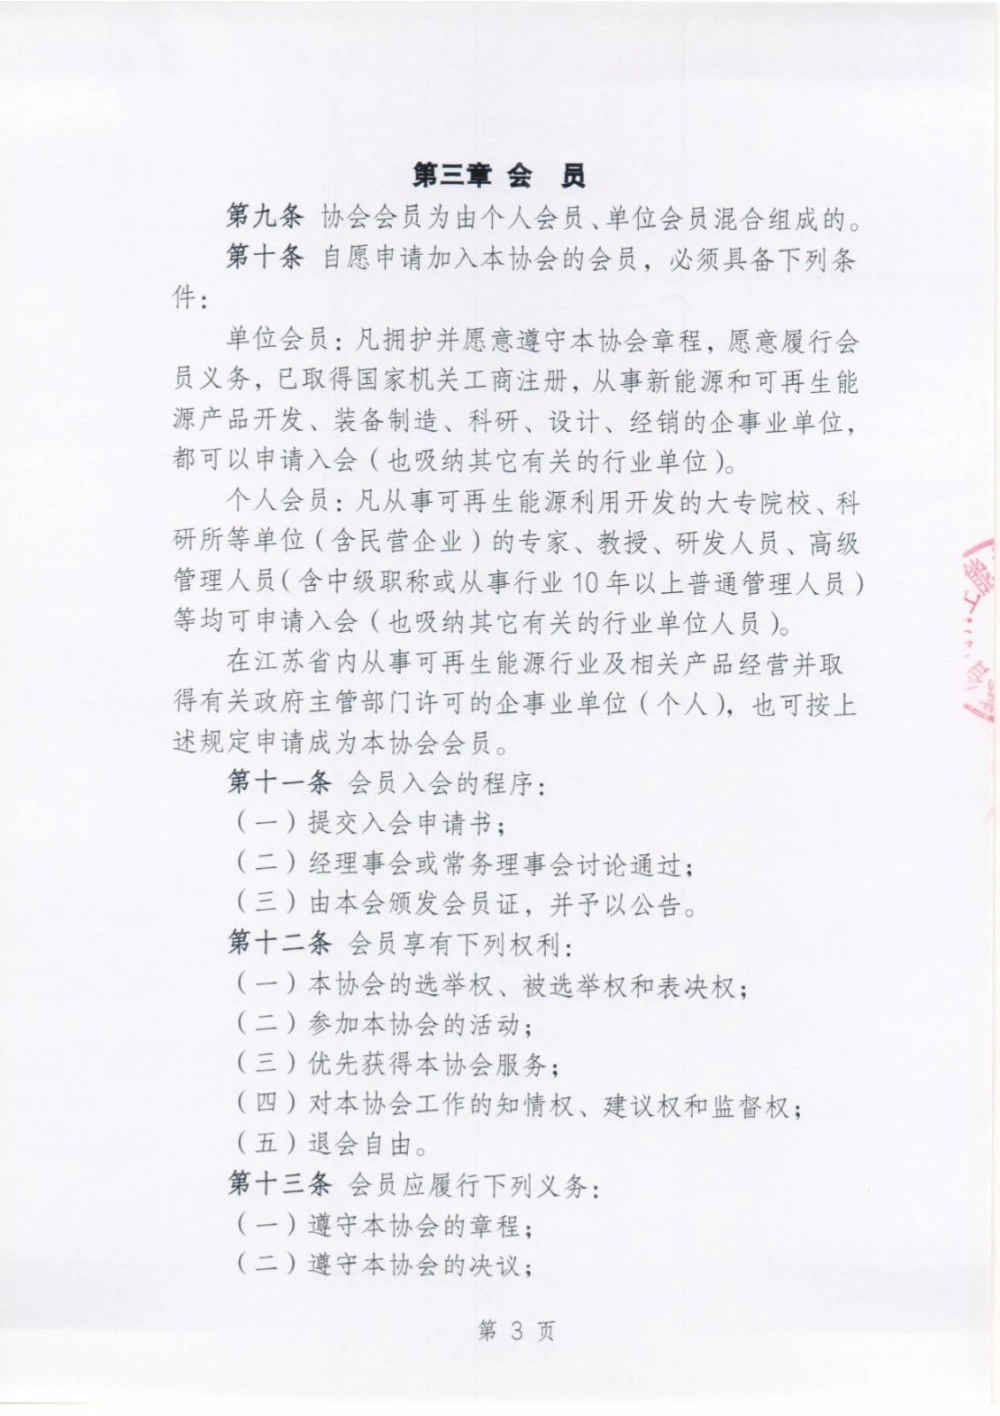 第三章 会 员
第九条 协会会员为由个人会员、单位会员混合组成的。
第十条 自愿申请加入本协会的会员，必须具备下列条
件：
单位会员：凡拥护并愿意遵守本协会章程，愿意履行会
员义务，已取得国家机关工商注册，从事新能源和可再生能
源产品开发、装备制造、科研、设计、经销的企事业单位，
都可以申请入会（也吸纳其它有关的行业单位）。
个人会员：凡从事可再生能源利用开发的大专院校、科
研所等单位（含民营企业）的专家、教授、研发人员、高级
管理人员（含中级职称或从事行业10年以上普通管理人员）
等均可申请入会（也吸纳其它有关的行业单位人员）。
在江苏省内从事可再生能源行业及相关产品经营并取
得有关政府主管部门许可的企事业单位（个人），也可按上
述规定申请成为本协会会员。
第十一条 会员入会的程序：
（一）提交入会申请书；
（二）经理事会或常务理事会讨论通过；
（三）由本会颁发会员证，并予以公告。
第十二条 会员享有下列权利：
（一）本协会的选举权、被选举权和表决权；
（二）参加本协会的活动；
（三）优先获得本协会服务；
（四）对本协会工作的知情权、建议权和监督权；
（五）退会自由。
第十三条 会员应履行下列义务：
（一）遵守本协会的章程；
（二）遵守本协会的决议；
第 3 页